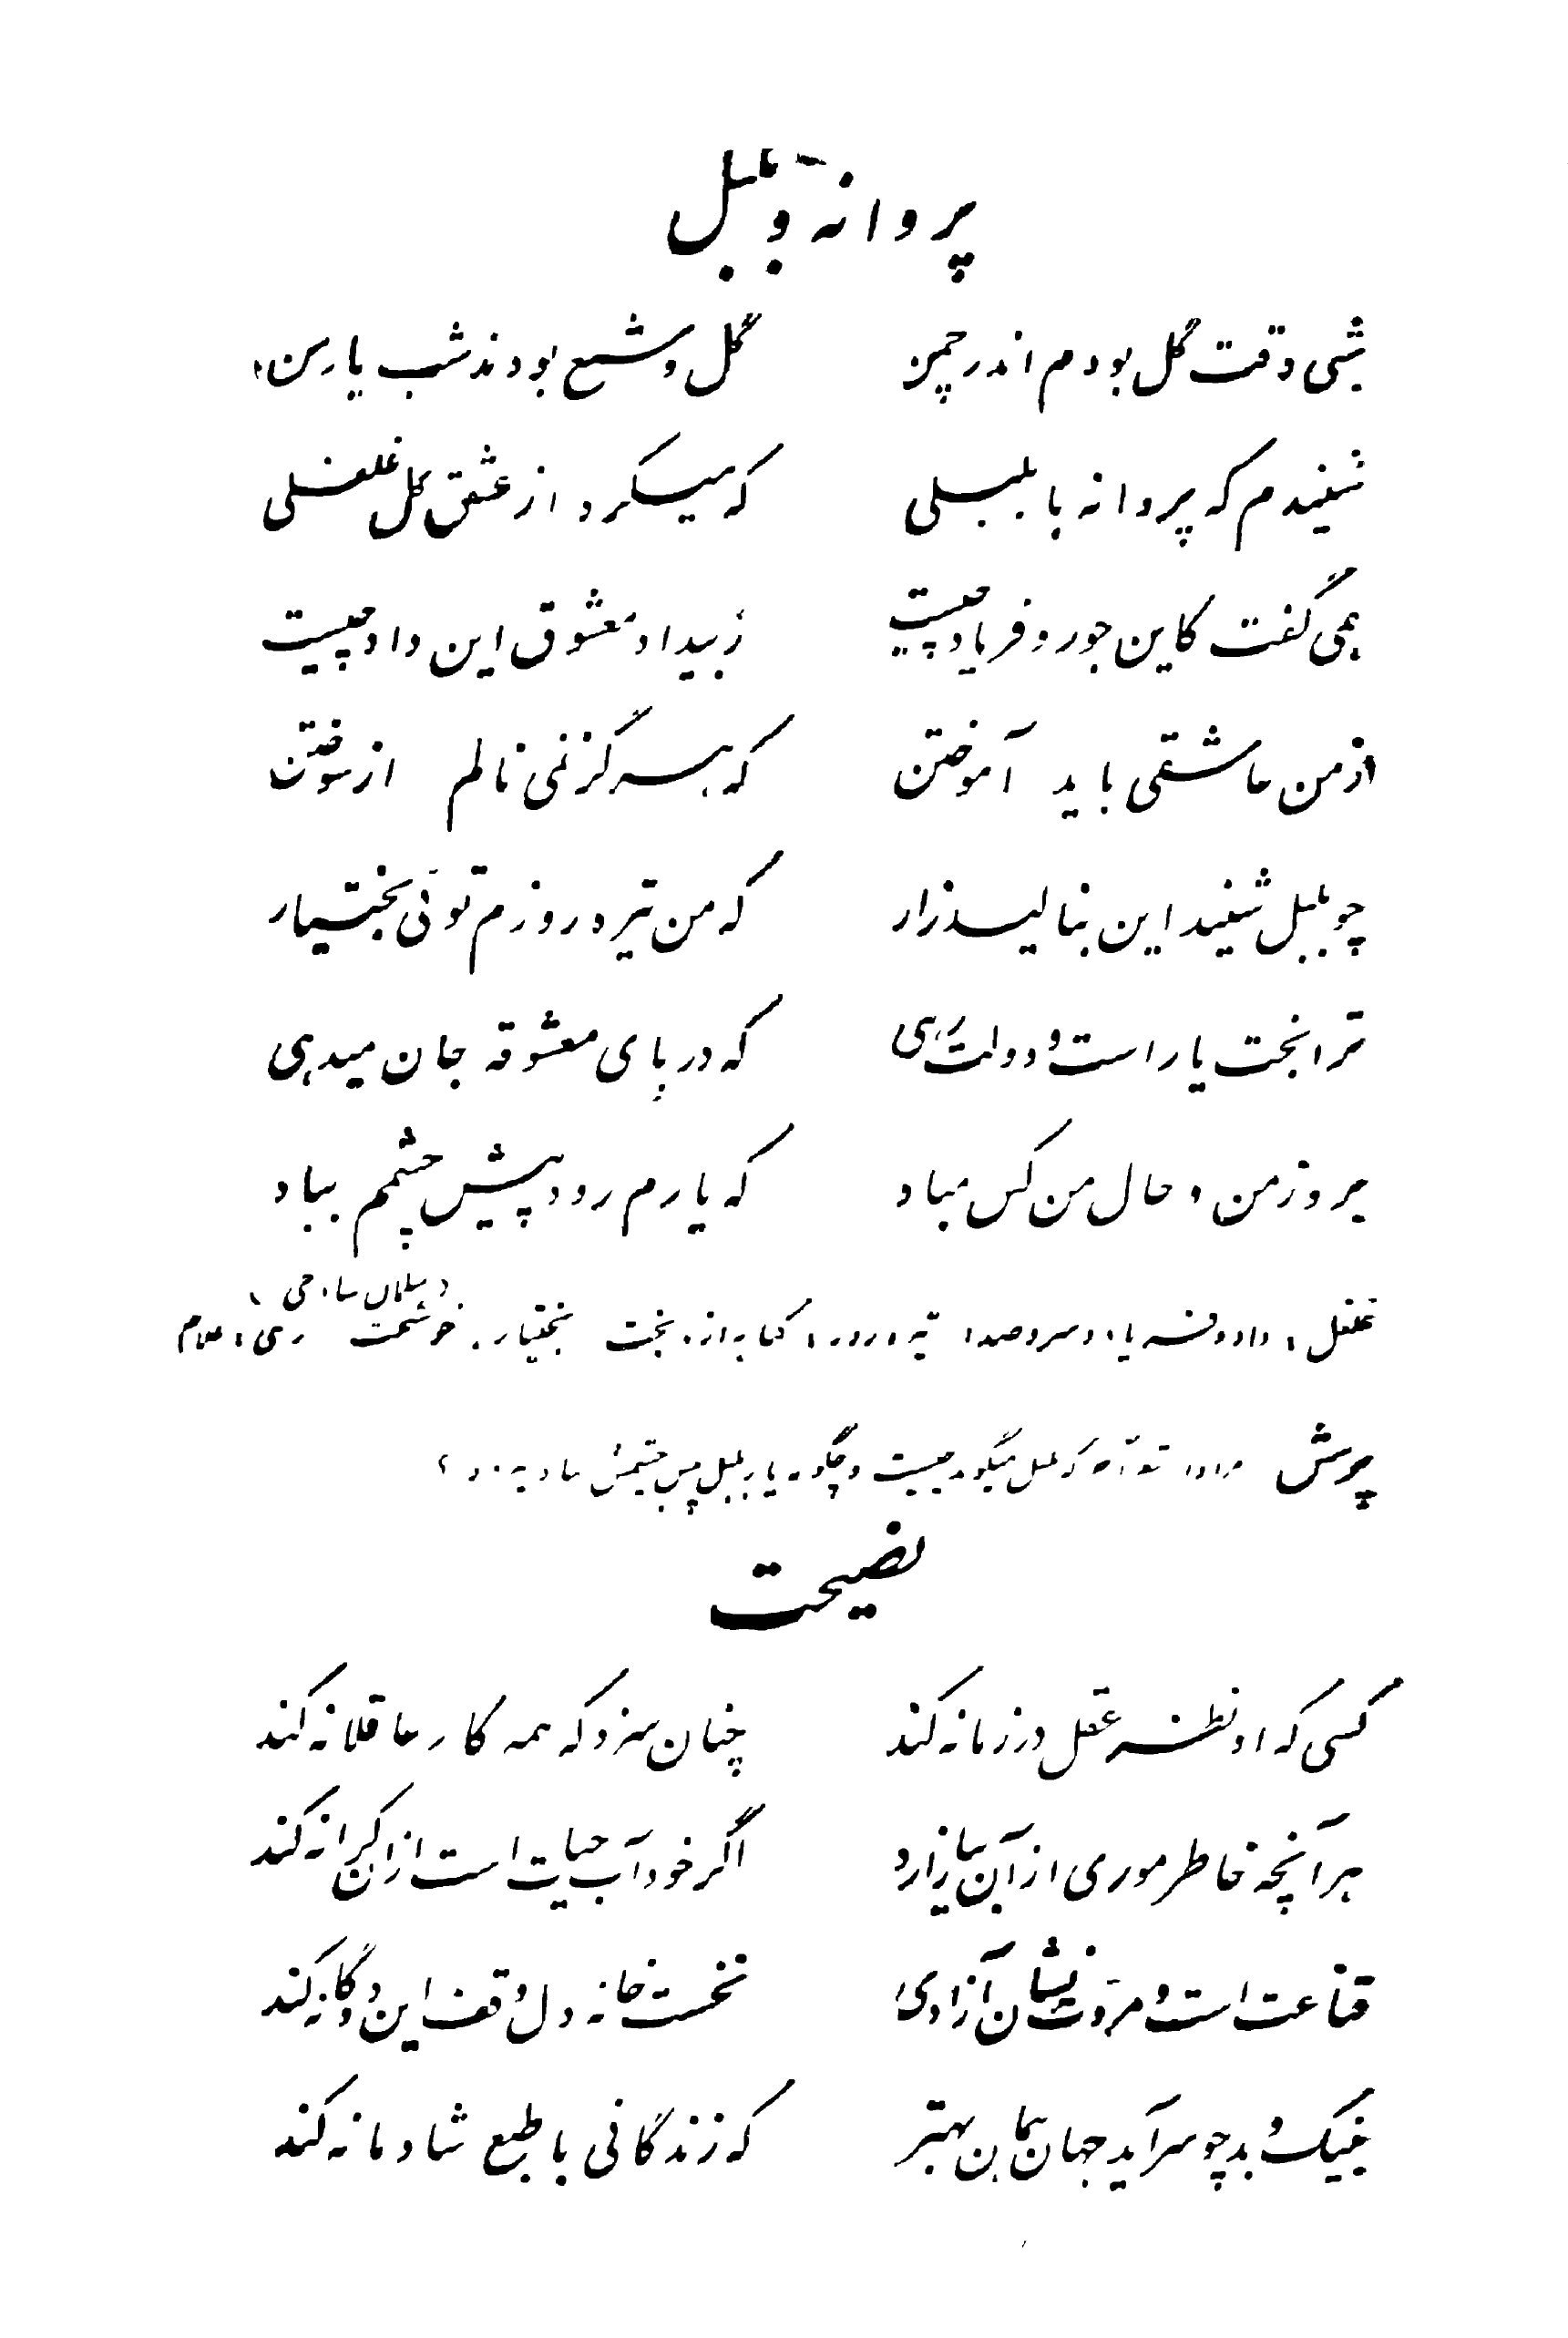 پروانه و بلبل
شبی وقت گل بودم اندر چمن گل و شمع بودند شب یار من
شنیدم که پروانه با بلبلی که میکرد از عشق گل غلغلی
همی گفت کاین جور و فریاد چیست ز بیداد معشوق این داد چیست
از من عاشقی باید آموختن که هرگز نمی نالم از سوختن
چو بلبل شنید این بنالید زار که من تیره روزم توئی بختیار
ترا بخت یار است و دولت رهی که در پای معشوقه جان میدهی
بروز من و حال من کس مباد که یارم رود پیش چشمم بباد
سلمان ساوجی
غلغل، داد و فریاد و سر و صدا بخت بختیار، خوشبخت رهی، غلام
پرسش بلبل میگوید چیست و چگونه یار بلبل پیش چشمش
نصیحت
کسی که او نظر عقل در زمانه کند چنان سزد که همه کار عاقلانه کند
هر آنچه خاطر موری از آن بیازارد اگر خود آب حیات است از آن کرانه کند
قناعت است و مروت نشان آزادی نخست خانه دل وقف این دوگانه کند
بنیک و بد چو سر آید جهان همان بهتر که زندگانی با طبع شادمانه کند